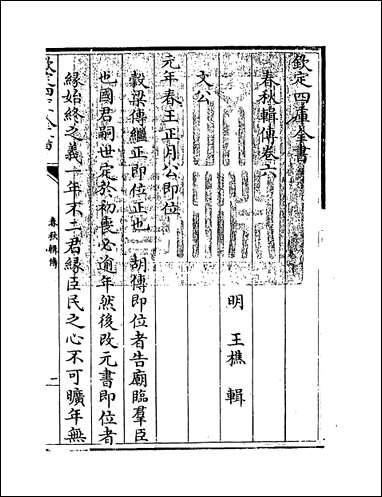 欽定四庫全書
春秋輯傳卷六
明 王樵 輯
文公
元年春王正月公即位
穀梁傳繼正即位正也 胡傳即位者告廟臨羣臣
也國君嗣世定於初喪必逾年然後改元書即位者
緣始終之義一年不二君緣臣民之心不可曠年無
春秋輯傳